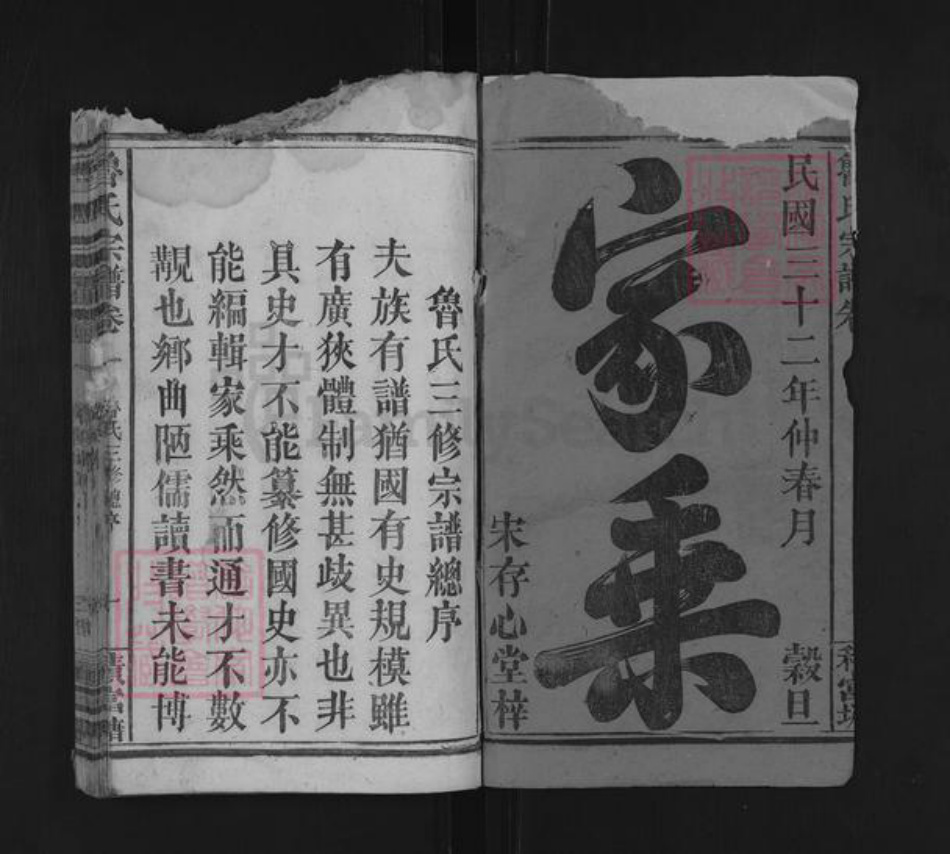 民國三十二年仲春月 穀旦
家乘
宋存心堂梓
魯氏三修宗譜總序
夫族有譜猶國有史規模雖
有廣狹體制無甚歧異也非
具史才不能纂修國史亦不
能編輯家乘然而通才不數
覯也鄉曲陋儒讀書未能博
魯氏宗譜卷一